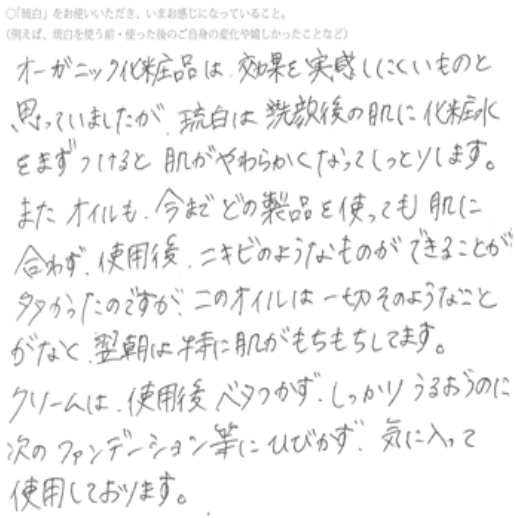 ○「琉白」をお使いいただき、いまお感じになっていること。
(例えば、琉白を使う前・使った後のご自身の変化や嬉しかったことなど)
オーガニック化粧品は、効果を実感しにくいものと
思っていましたが、琉白は洗顔後の肌に化粧水
をまずつけると肌がやわらかくなってしっとりします。
また オイルも、今までどの製品を使っても肌に
合わず、使用後、ニキビのようなものができることが
多かったのですが、このオイルは一切そのようなこと
がなく、翌朝は特に肌がもちもちしてます。
クリームは、使用後ベタつかず、しっかりうるおうのに
次のファンデーション等にひびかず、気に入って
使用しております。